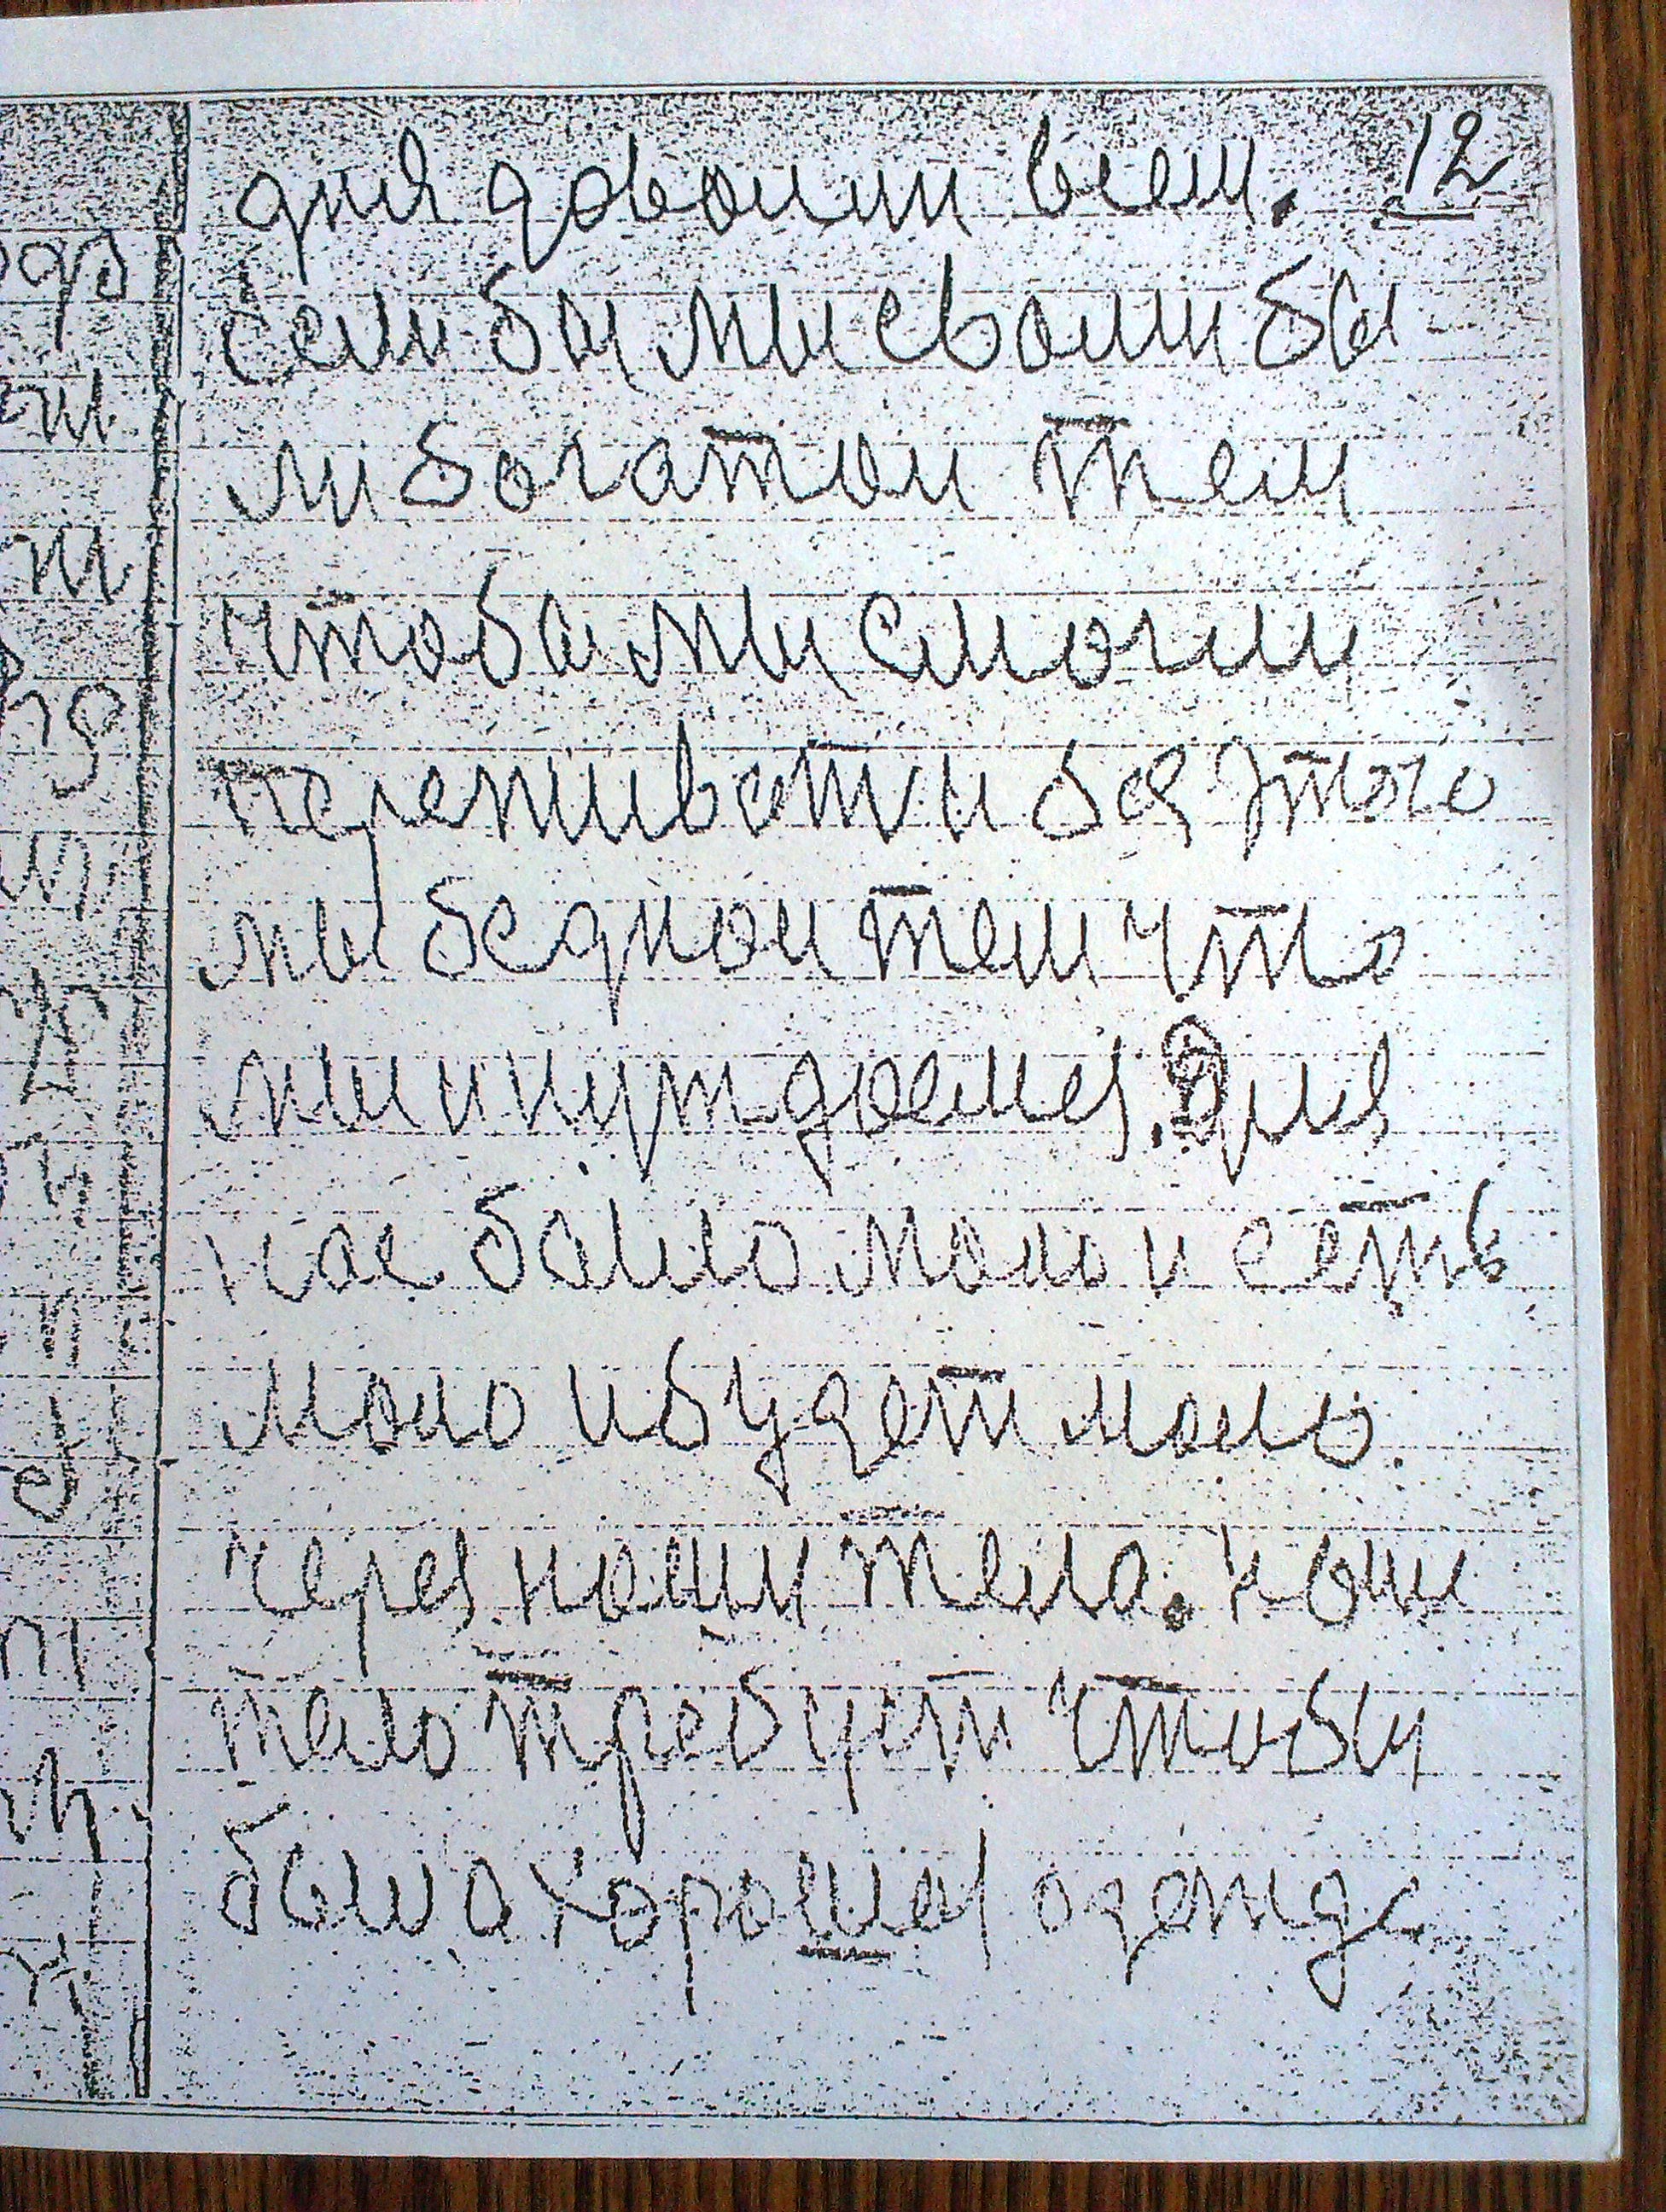 дня довоlim всем. 12
Если бы мы сволим бы-
ли богатои тем
чтобы мы смогли
переживати без этого
мы беднои тем что
мы и нуждаемся. Для
нас было мало и есть
мало и будет мало.
через нашу тела. наше
тело требует чтобы
была хорошая одежда